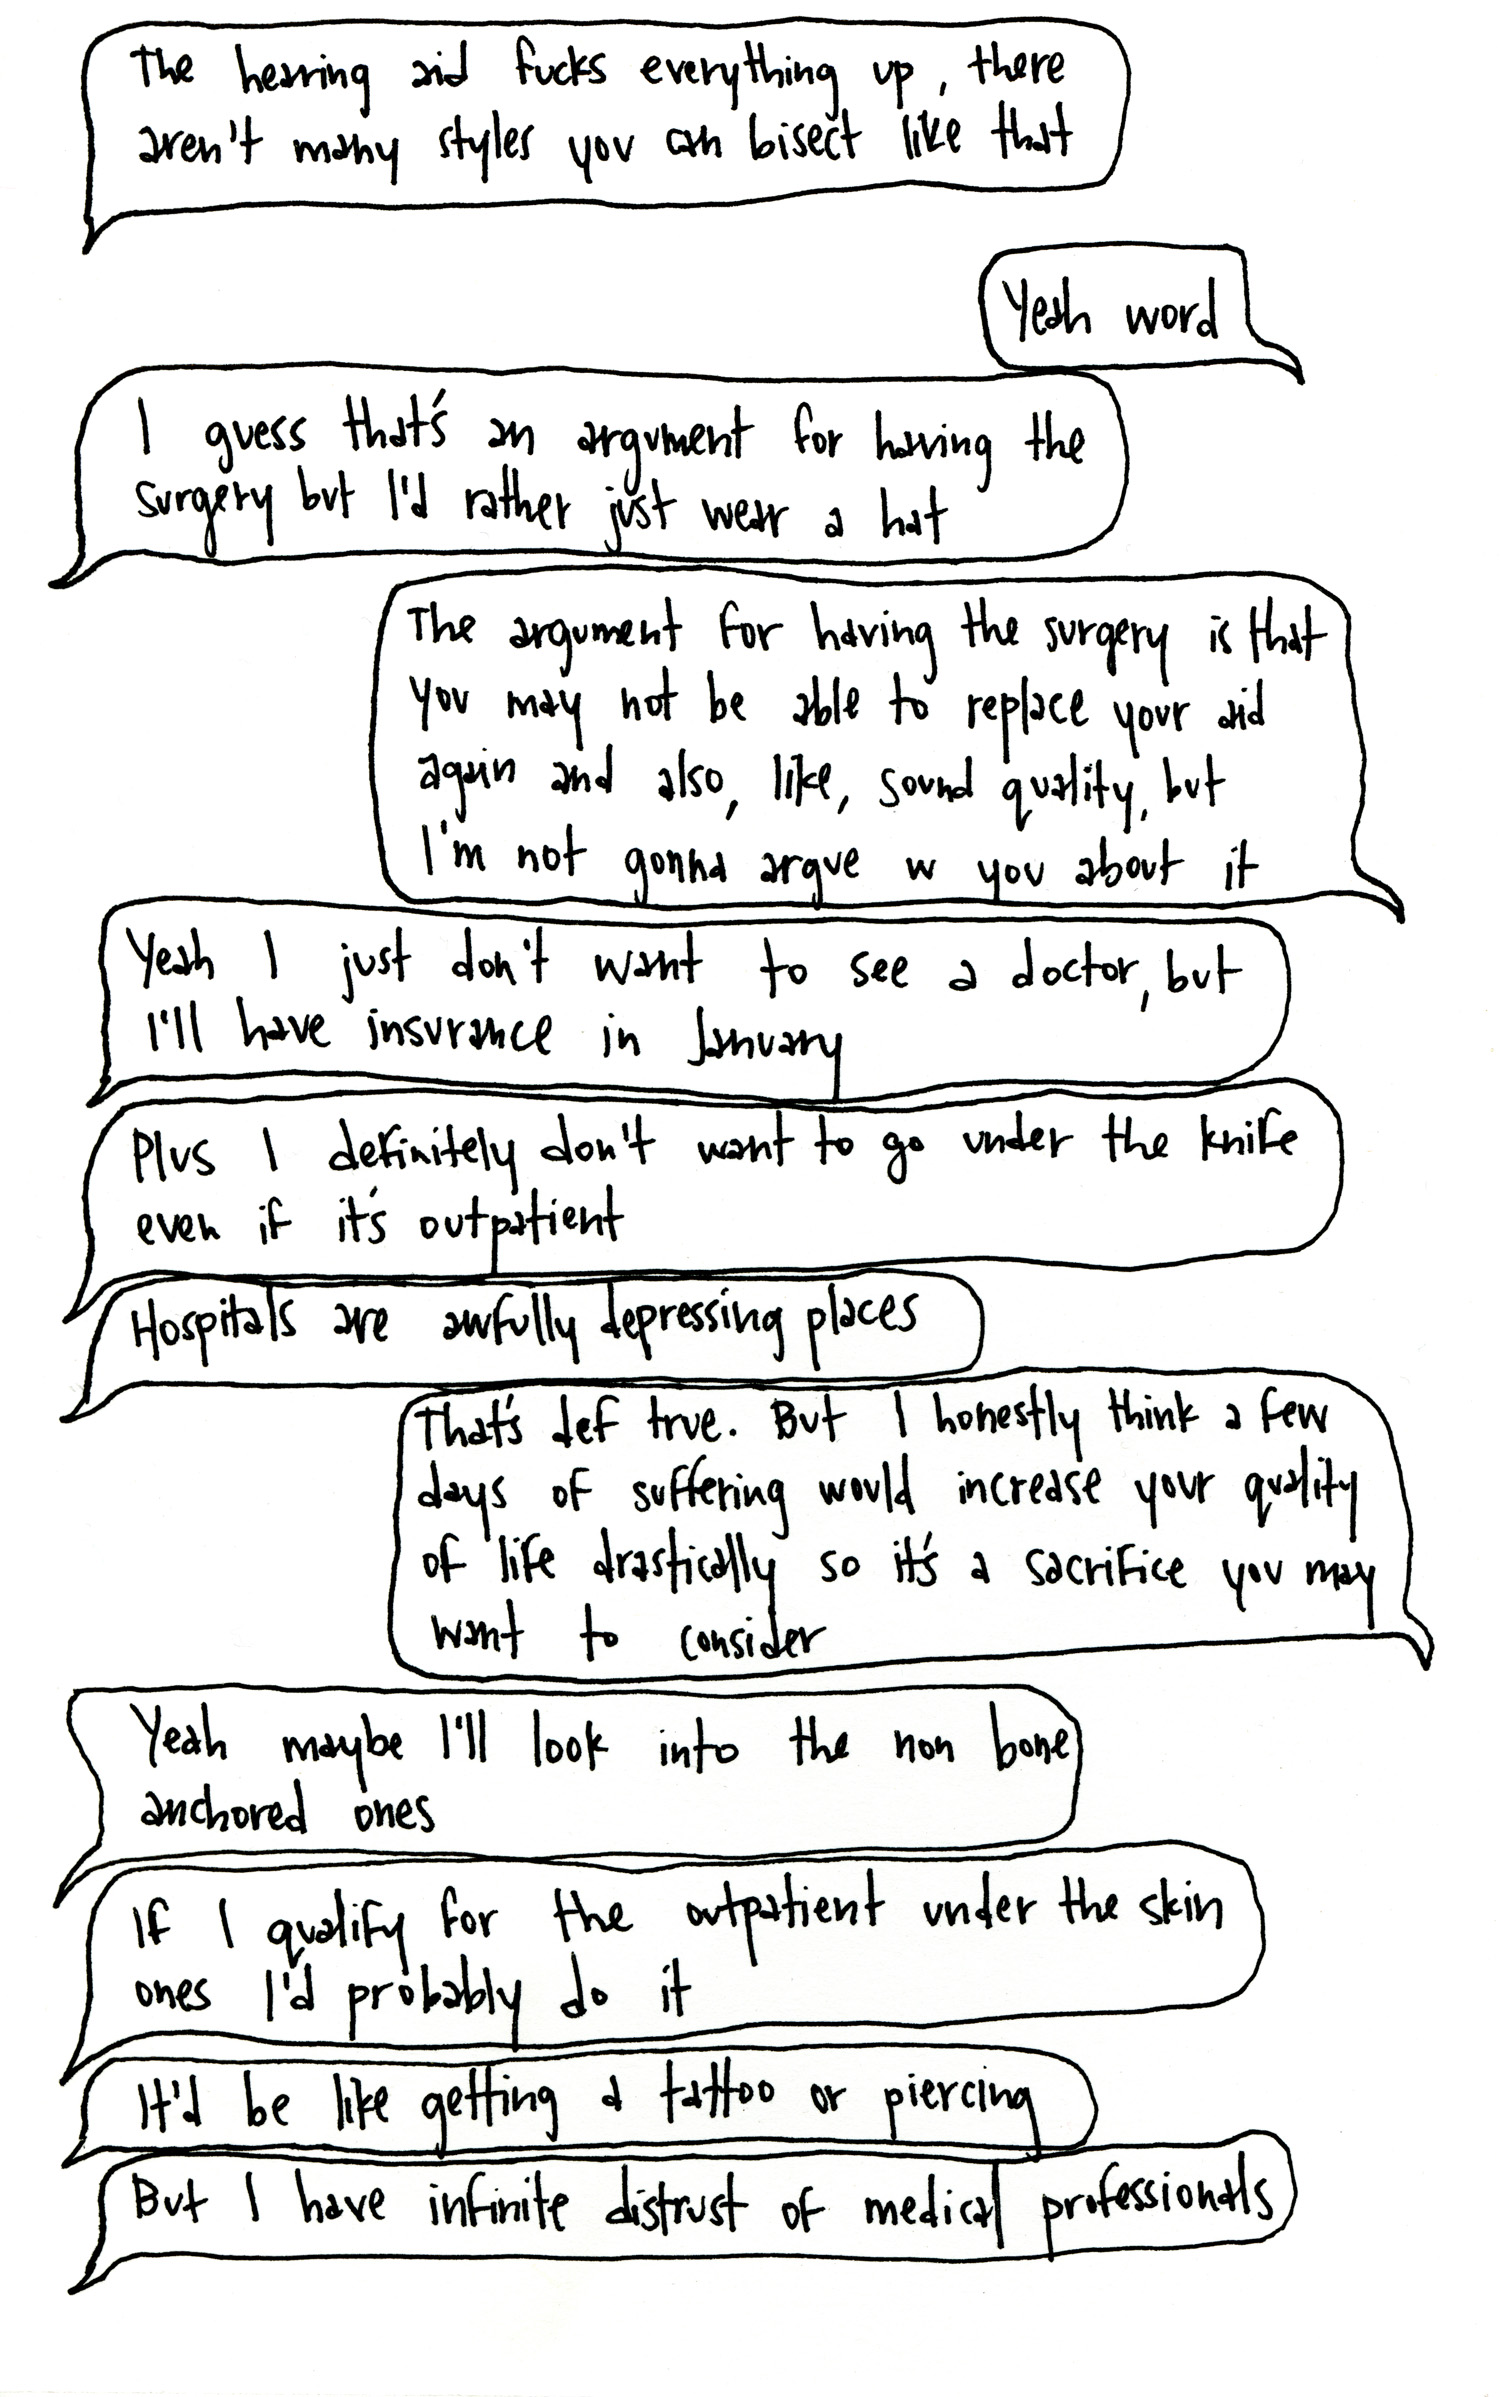 The hearing aid fucks everything up, there
aren't many styles you can bisect like that
Yeah word
I guess that's an argument for having the
surgery but I'd rather just wear a hat
The argument for having the surgery is that
you may not be able to replace your aid
again and also, like, sound quality, but
I'm not gonna argue w you about it
Yeah I just don't want to see a doctor, but
I'll have insurance in January
Plus I definitely don't want to go under the knife
even if it's outpatient
Hospitals are awfully depressing places
That's def true. But I honestly think a few
days of suffering would increase your quality
of life drastically so it's a sacrifice you may
want to consider
Yeah maybe I'll look into the non bone
anchored ones
If I qualify for the outpatient under the skin
ones I'd probably do it
It'd be like getting a tattoo or piercing
But I have infinite distrust of medical professionals